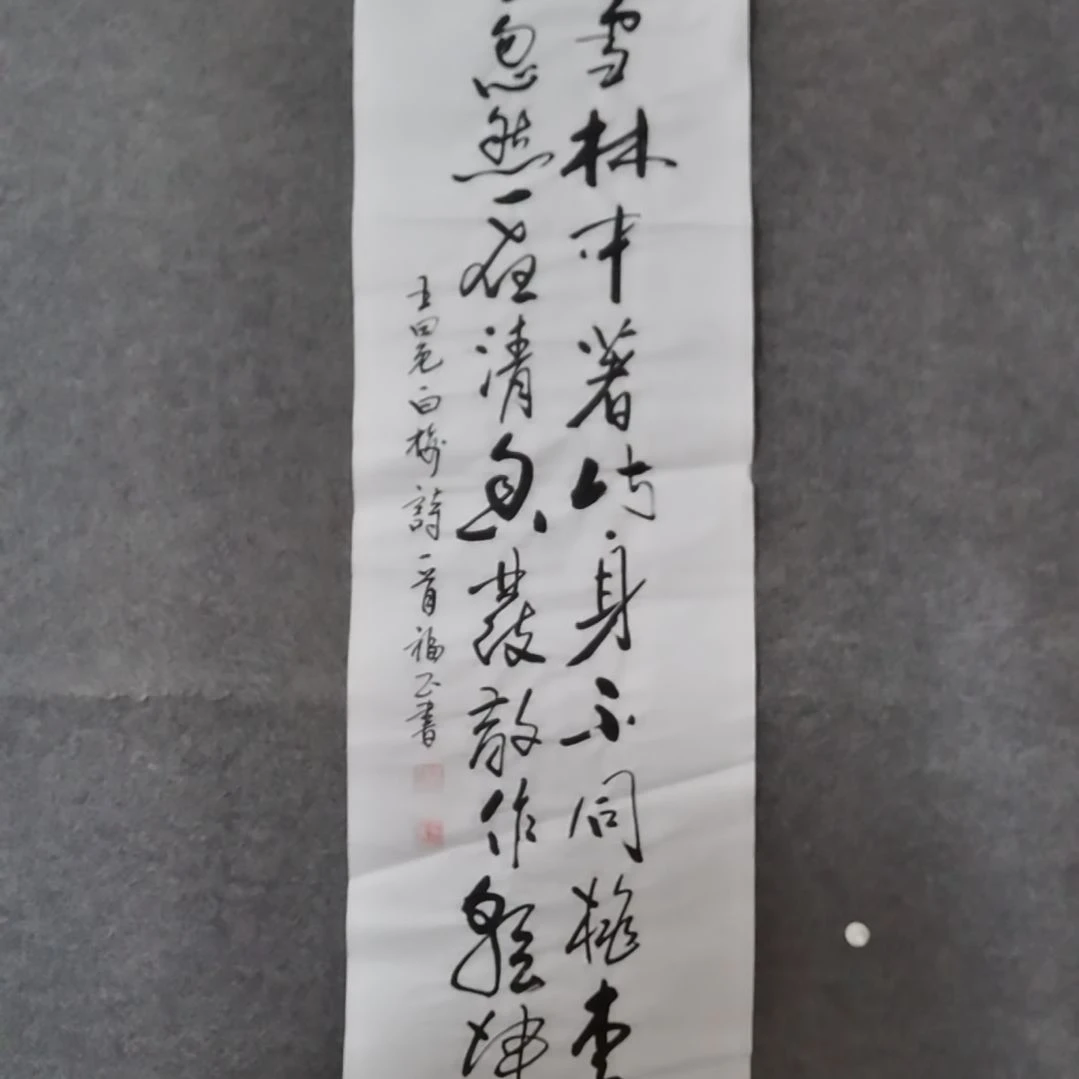 雪林中著此身不同桃李
忽然一夜清香發散作乾坤
王冕白梅詩一首福正書